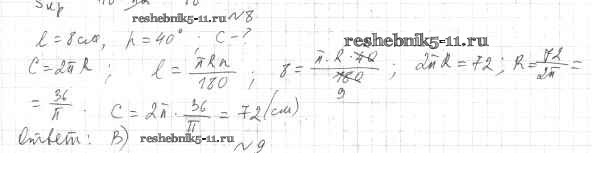 reshebnik5-11.ru №8
l = 8 см, n = 40° . C - ?
reshebnik5-11.ru
C = 2πR ; l = πRn/180 ; 8 = π·R·40/180 9 ; 2πR = 72 ; R = 72/2π =
= 36/π . C = 2π · 36/π = 72 (см).
Ответ: В) reshebnik5-11.ru
№9